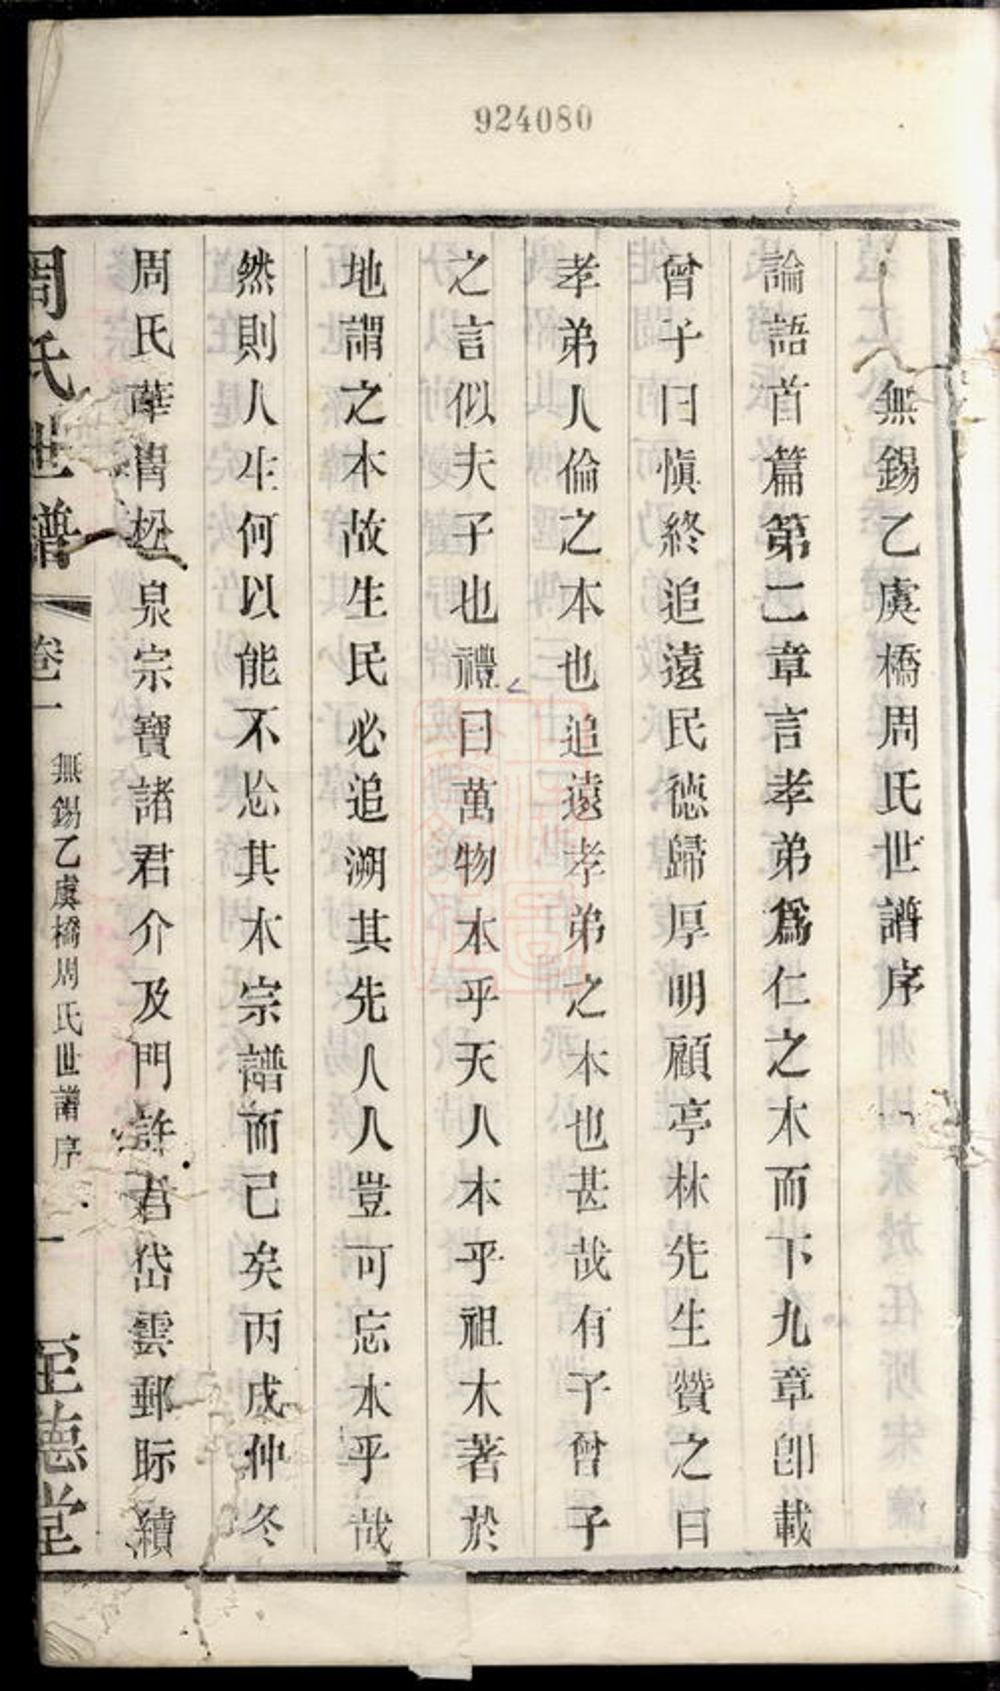 924080
無錫乙虞橋周氏世譜序
論語首篇第二章言孝弟爲仁之本而下九章卽載
曾子曰愼終追遠民德歸厚明顧亭林先生贊之曰
孝弟人倫之本也追遠孝弟之本也甚哉有子曾子
之言似夫子也禮曰萬物本乎天人本乎祖木著於
地謂之本故生民必追溯其先人人豈可忘本乎哉
然則人生何以能不忘其本宗譜而已矣丙戌仲冬
周氏華冑松泉宗寶諸君介及門許君岱雲郵眎續
周氏世譜
卷一
無錫乙虞橋周氏世譜序
一
至德堂